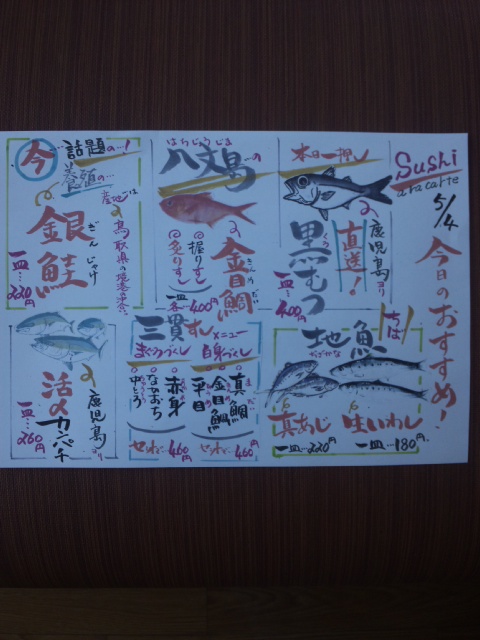 Sushi
a la carte
5/4
今日のおすすめ!
本日一押し
鹿児島より
直送!
黒むつ
一皿…400円
はちじょうじま
八丈島の
きんめだい
金目鯛
握りずし
炙りずし
一皿各…400円
今…話題の…!
養殖の…
産地は
鳥取県の境港の沖合。
ぎんじゃけ
銀鮭
一皿…220円
ちば
地魚
生いわし
一皿…180円
真あじ
一皿…220円
三貫ずしメニュー
白身づくし
真鯛
金目鯛
平目
セットで…460円
まぐろづくし
赤身
中とろ
セットで…460円
鹿児島より
活〆カンパチ
一皿…260円